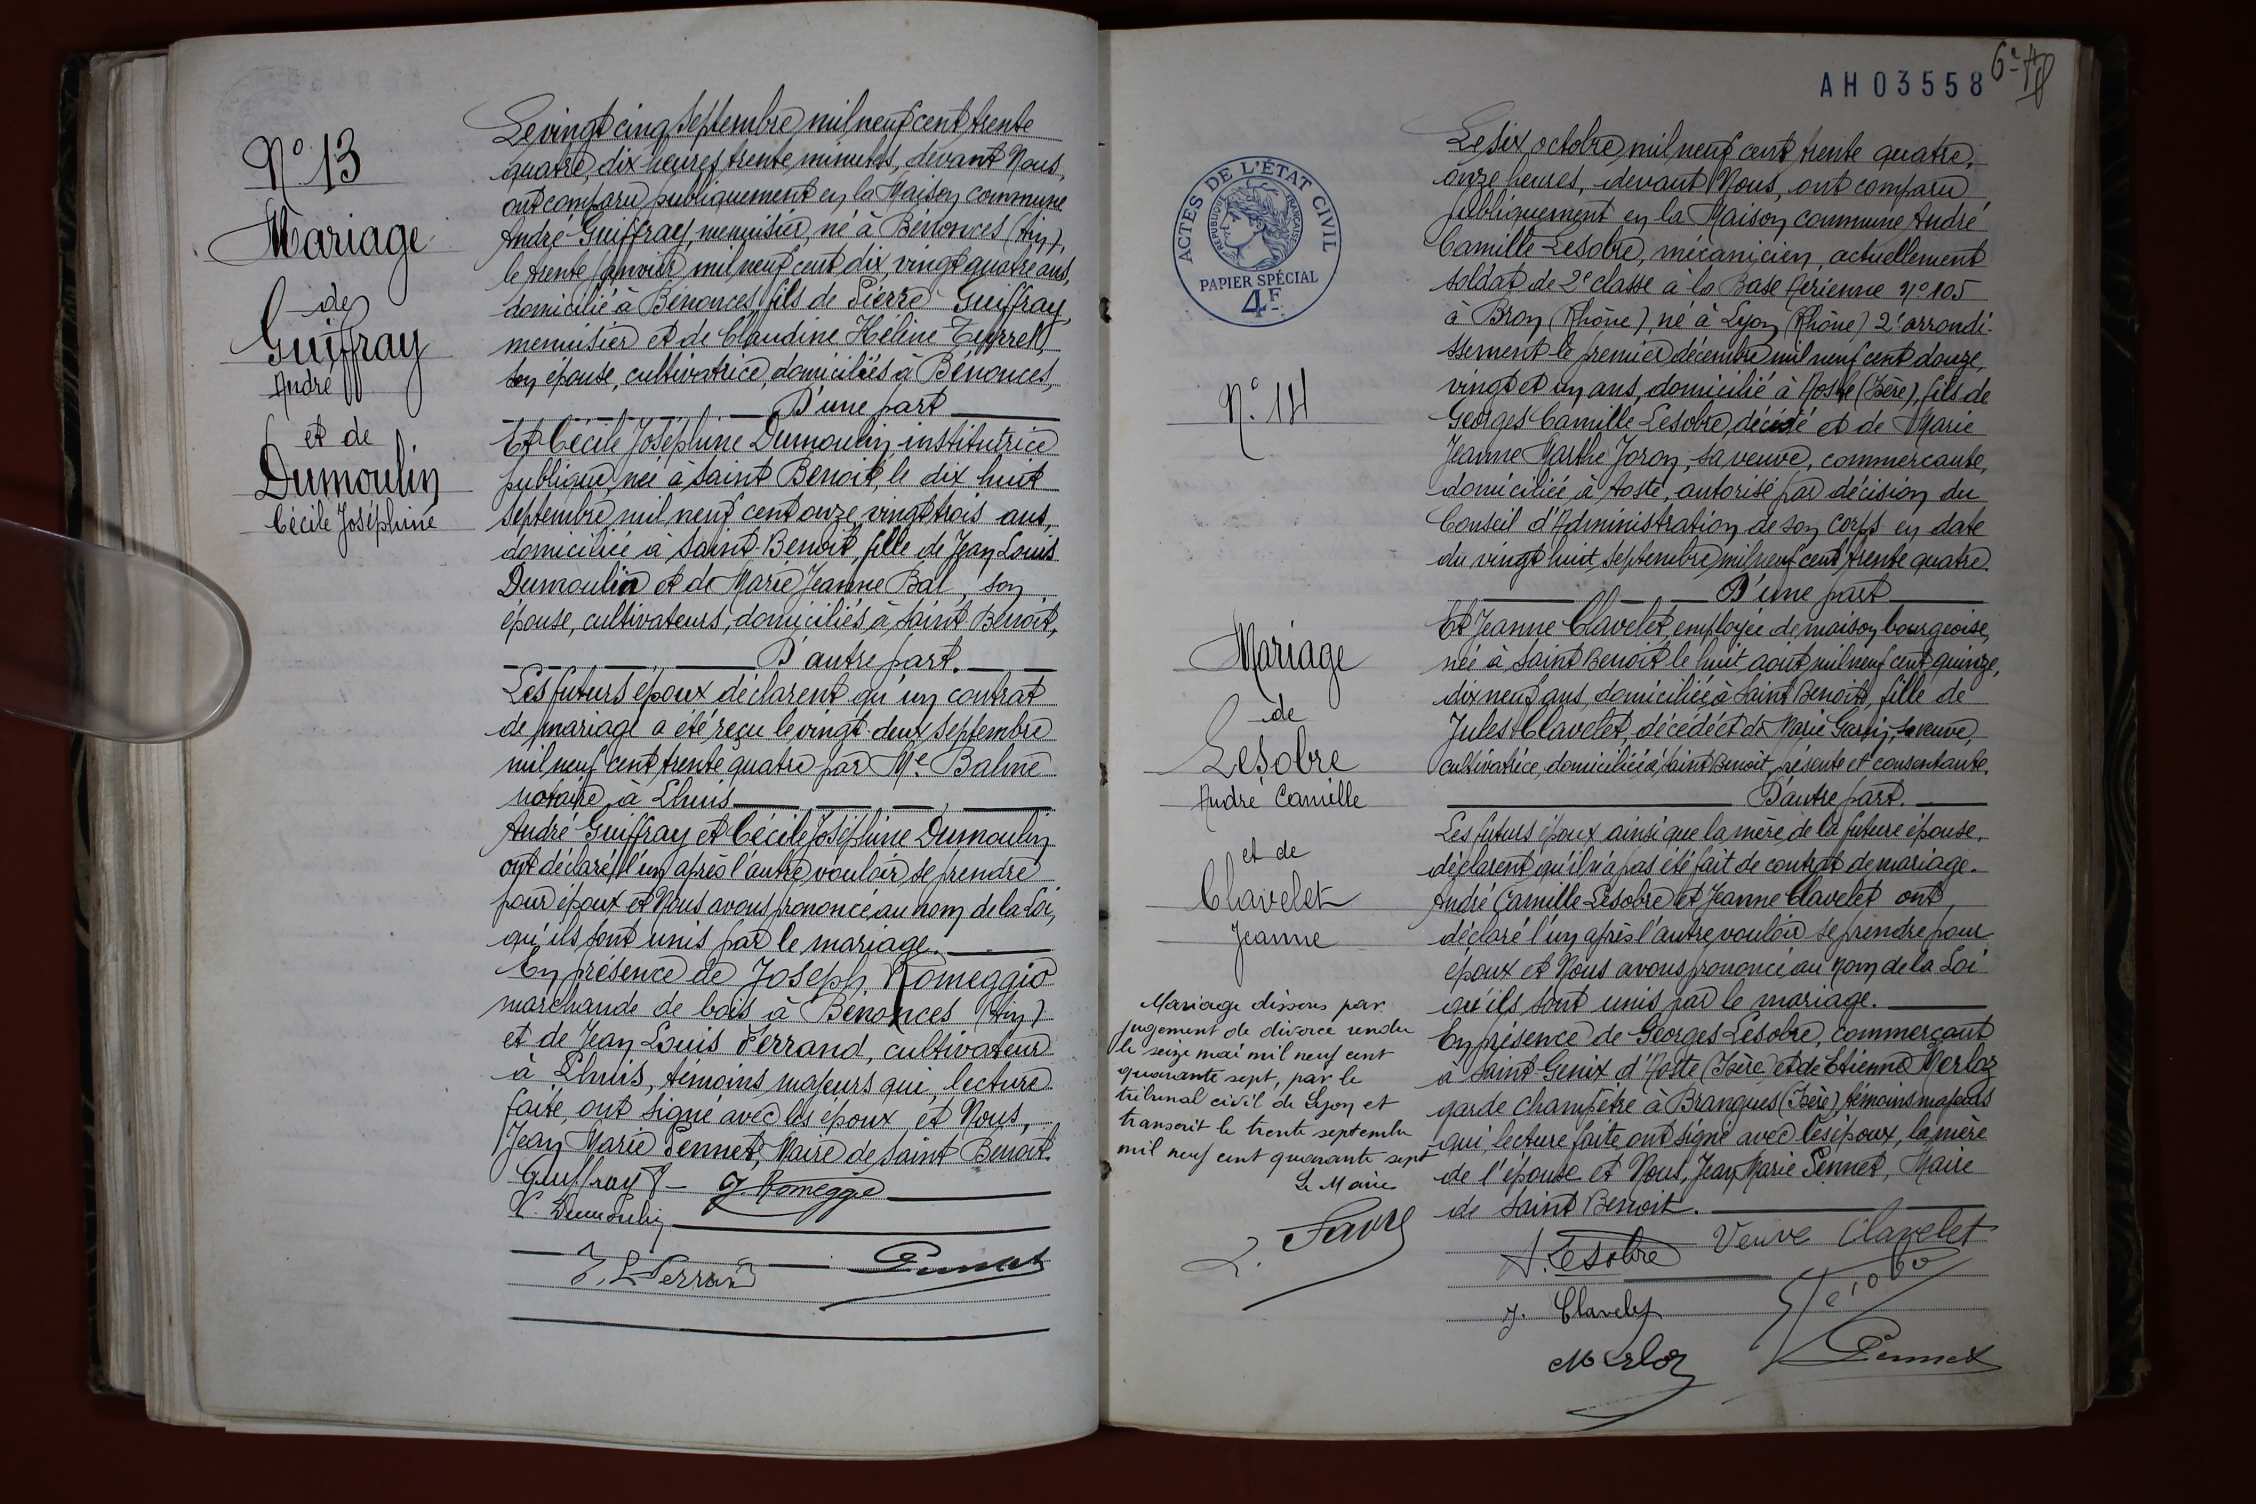 N° 13
Mariage
de
Guiffray
André
et de
Dumoulin
Cécile Joséphine
Le vingt cinq septembre mil neuf cent trente
quatre, dix heures trente minutes, devant Nous,
ont comparu publiquement en la Maison commune
André Guiffray, menuisier, né à Bénonces (Ain),
le trente janvier mil neuf cent dix, vingt quatre ans,
domicilié à Bénonces, fils de Pierre Guiffray,
menuisier et de Claudine Hélène
son épouse, cultivatrice, domiciliés à Bénonces,
D'une part
Et Cécile Joséphine Dumoulin, institutrice
publique, née à Saint Benoit, le dix huit
septembre mil neuf cent onze, vingt trois ans,
domiciliée à Saint-Benoit, fille de Jean Louis
Dumoulin et de Marie Jeanne Bal, son
épouse, cultivateurs, domiciliés à Saint Benoit,
D'autre part.
Les futurs époux déclarent qu'un contrat
de mariage a été reçu le vingt-deux septembre
mil neuf cent trente quatre par Me Balme
notaire à Lhuis
André Guiffray et Cécile Joséphine Dumoulin
ont déclaré l'un après l'autre vouloir se prendre
pour époux et Nous avons prononcé au nom de la Loi,
qu'ils sont unis par le mariage.
En présence de Joseph Romeggio
marchande de bois à Bénonces (Ain)
et de Jean Louis Ferrand, cultivateur
à Lhuis, témoins majeurs qui, lecture
faite, ont signé avec les époux et Nous,
Jean Marie Pennet, Maire de Saint Benoit.
Guiffray J. Romeggio
C. Dumoulin
J. L Ferrand Pennet
AH03558
ACTES DE L'ÉTAT CIVIL
RÉPUBLIQUE FRANÇAISE
PAPIER SPÉCIAL
4F
N° 14
Mariage
de
Lesobre
André Camille
et de
Clavelet
Jeanne
Mariage dissous par
jugement de divorce rendu
le seize mai mil neuf cent
quarante sept, par le
tribunal civil de Lyon et
transcrit le trente septembre
mil neuf cent quarante sept
Le Maire
L. Favre
Le six octobre mil neuf cent trente quatre,
onze heures, devant Nous, ont comparu
publiquement en la Maison commune André
Camille Lesobre, mécanicien, actuellement
soldat de 2e classe à la Base Aérienne n° 105
à Bron (Rhône), né à Lyon (Rhône) 2e arrondi-
ssement le premier décembre mil neuf cent douze,
vingt et un ans, domicilié à Aoste (Isère), fils de
Georges Camille Lesobre, décédé et de Marie
Jeanne Marthe Joron, sa veuve, commerçante,
domiciliée à Aoste, autorisé par décision du
Conseil d'Administration de son corps en date
du vingt huit septembre mil neuf cent trente quatre.
D'une part
Et Jeanne Clavelet, employée de maison bourgeoise,
née à Saint Benoit le huit août mil neuf cent quinze,
dix neuf ans, domiciliée à Saint Benoit, fille de
Jules Clavelet, décédé et de Marie sa veuve,
cultivatrice, domiciliée à Saint Benoit, présente et consentante.
D'autre part.
Les futurs époux ainsi que la mère de la future épouse,
déclarent qu'il n'a pas été fait de contrat de mariage.
André Camille Lesobre et Jeanne Clavelet ont
déclaré l'un après l'autre vouloir se prendre pour
époux et Nous avons prononcé au nom de la Loi
qu'ils sont unis par le mariage.
En présence de Georges Lesobre, commerçant
à Saint-Genix d'Aoste (Isère) et de Etienne Merloz
garde champêtre à Brangues (Isère), témoins majeurs
qui, lecture faite, ont signé avec les époux, la mère
de l'épouse et Nous, Jean Marie Pennet, Maire
de Saint Benoit.
A. Lesobre Veuve Clavelet
J. Clavelet
Merloz Pennet